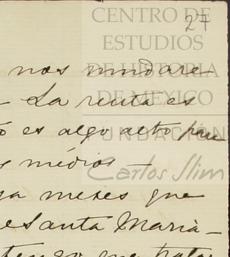 CENTRO DE
27
ESTUDIOS
DE HISTORIA
nos mudare
DE MEXICO
- La renta es
es algo alto pa
FUNDACIÓN
medios -
Carlos Slim
meses que
Santa Maria -
tengo que